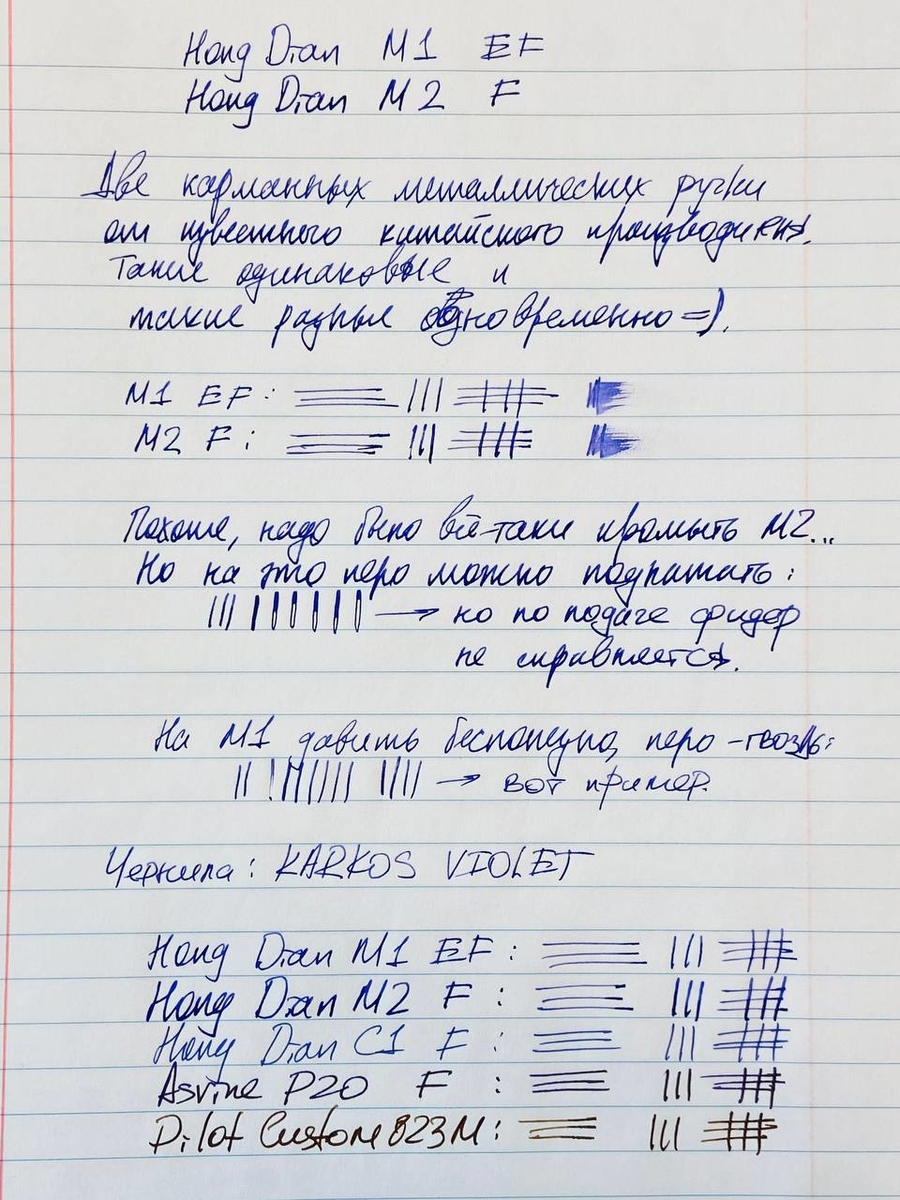 Hong Dian M1 EF
Hong Dian M2 F
Две карманных металлических ручки
от известного китайского производителя.
Такие одинаковые и
такие разные одновременно =).
M1 EF:
M2 F:
Похоже, надо было всё-таки промыть M2...
Но на это перо можно поднажать:
но по подаче фидер
не справляется.
На M1 давить бесполезно, перо - гвоздь:
вот пример.
Чернила: KARKOS VIOLET
Hong Dian M1 EF:
Hong Dian M2 F:
Hong Dian C1 F:
Asvine P20 F:
Pilot Custom 823 M: